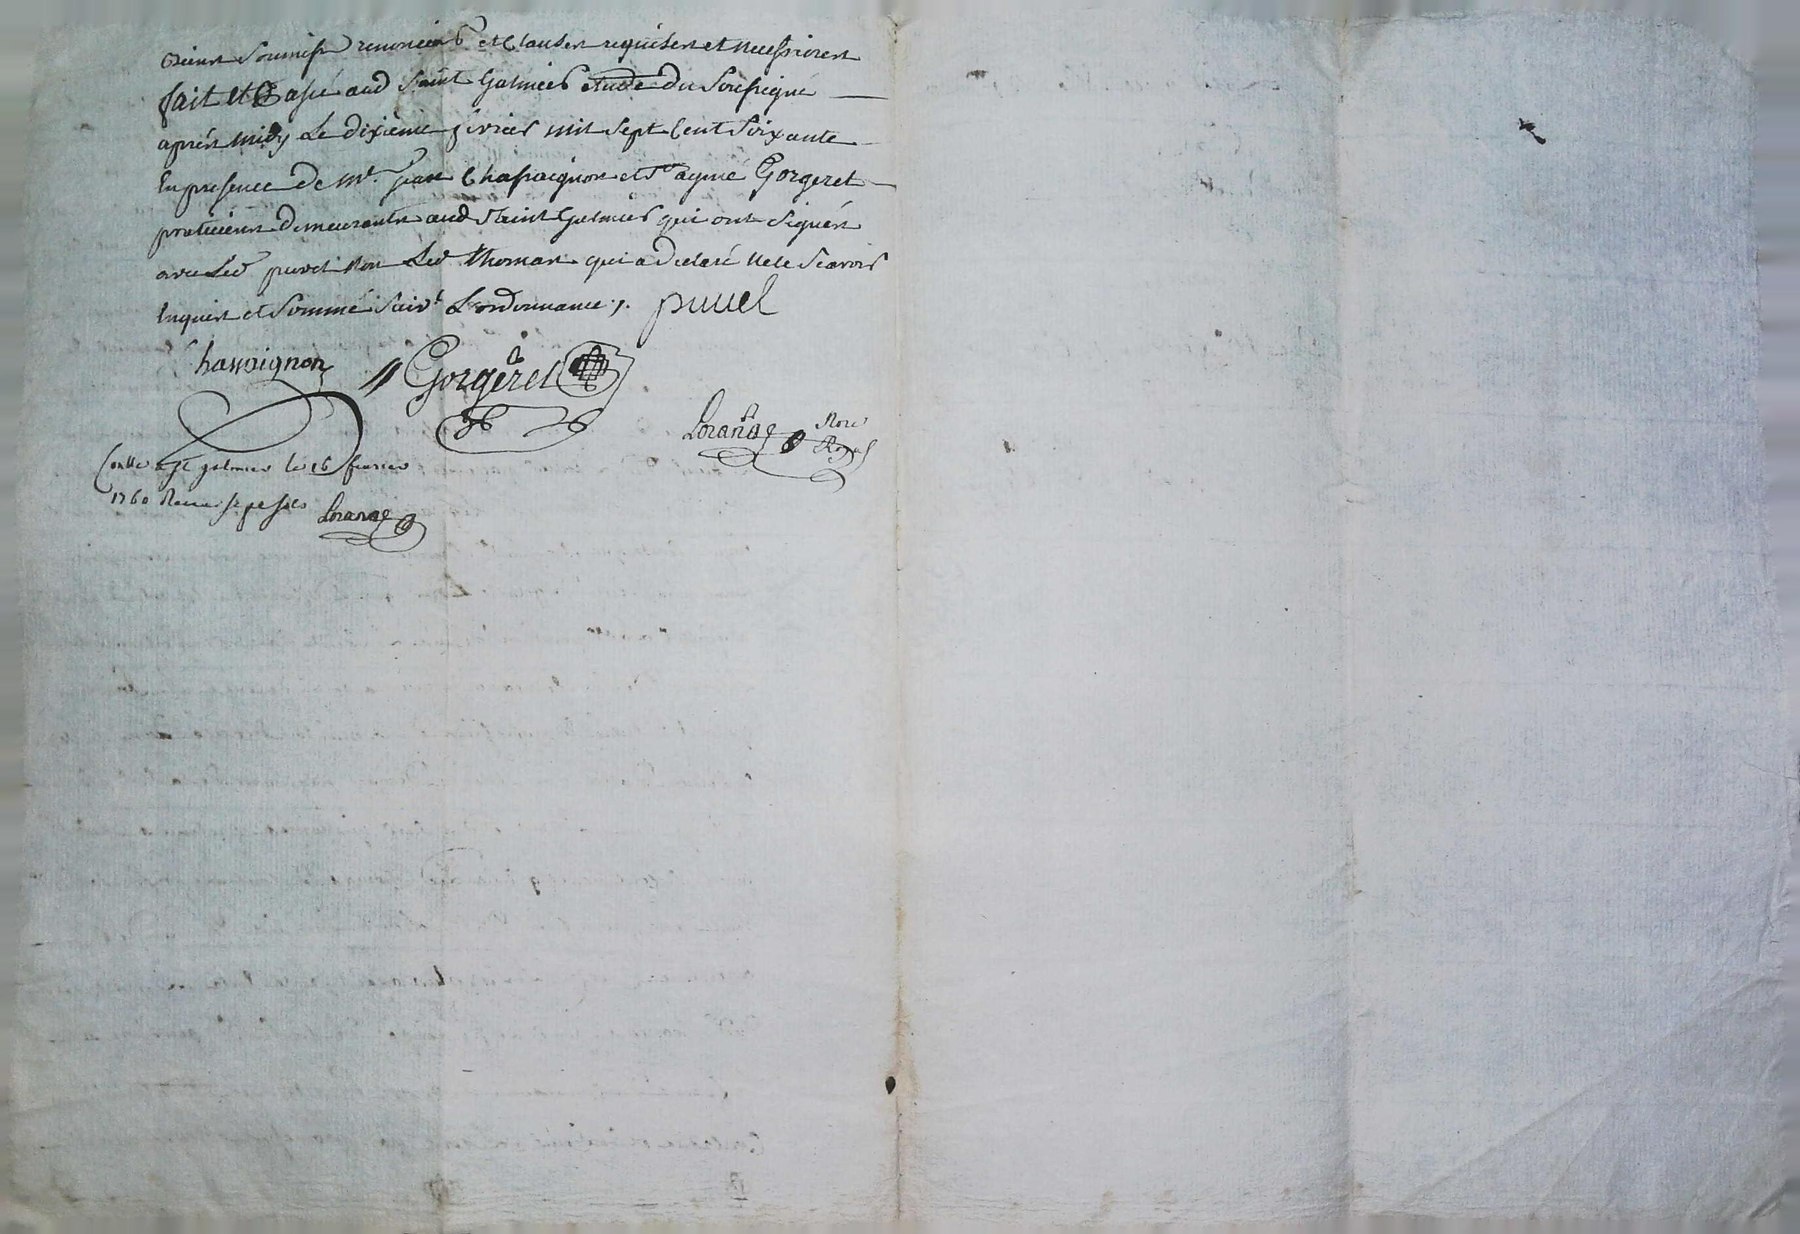 biens soumisˢ renonciaõns et Clauses requises et necessaires
fait et Passé aud Saint Galmier etude du Soussigné
après midy Le dixieme fevrier mil sept Cent soixante
En presence de Mᵉ. Jean Chassaignon et Sʳ aymé Gorgeret
praticiens demeurants aud Saint Galmier qui ont signés
avec Led puvel Non Led Thomas qui a declaré ne le Scavoir
Enquis et sommé suivᵗ L'ordonnance ;. puvel
Chassaignon Gorgeret
Lorange Noʳᵉ
Royal
Conllé a St galmier le 16 fevrier
1760 Reçu
Lorange